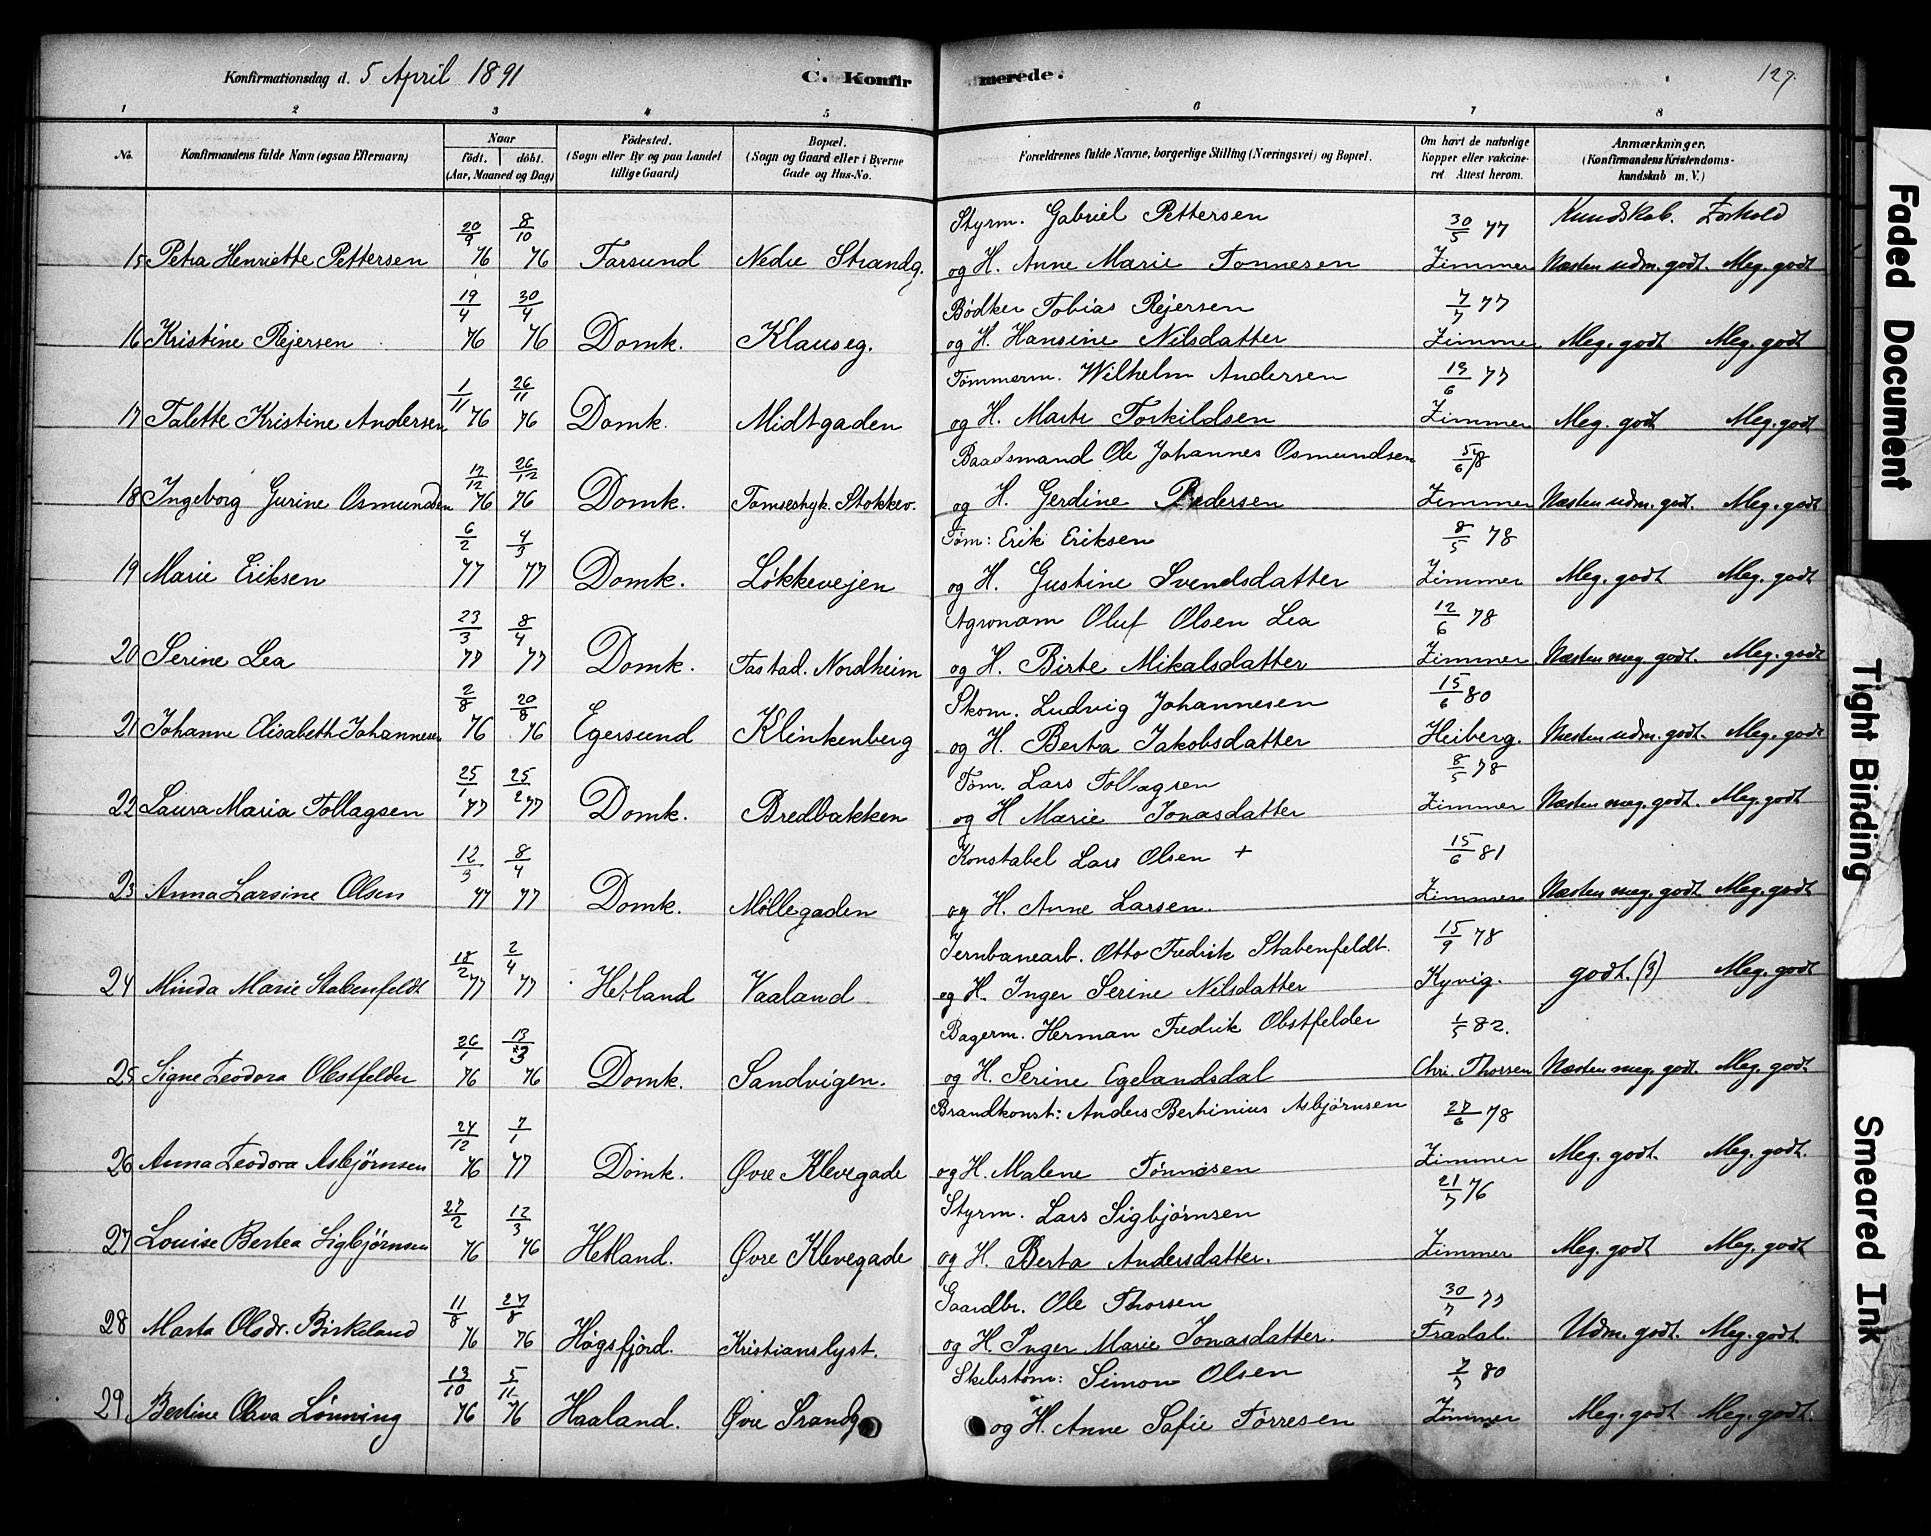 Konfirmationsdag d. 5 April 1891 C. Konfirmerede. 127.
1 2 3 4 5 6 7 8
No. Konfirmandens fulde Navn (ogsaa Efternavn) Naar födt. döbt. (Aar, Maaned og Dag) Födested. (Sogn eller By og paa Landet tillige Gaard) Bopæl. (Sogn og Gaard eller i Byerne Gade og Hus-No. Forældrenes fulde Navne, borgerlige Stilling (Næringsvei) og Bopæl. Om havt de naturlige Kopper eller vakcineret Attest herom. Anmærkninger. (Konfirmandens Kristendomskundskab m. V.)
20/9 8/10 Styrm. Gabriel Pettersen 30/5 77 Kundskab. Forhold
15 Petra Henriette Pettersen 76 76 Farsund Nedre Strandg. og H. Anne Marie Tonnesen Zimmer Næsten udm. godt. Meg. godt
19/4 30/4 Bødker Tobias Rejersen 7/7 77
16 Kristine Rejersen 76 76 Domk. Klauseg. og H. Hansine Nilsdatter Zimmer Meg. godt Meg. godt
1/11 26/11 Tømmerm. Wilhelm Andersen 19/6 77
17 Talette Kristine Andersen 76 76 Domk. Midtgaden og H. Marte Torkildsen Zimmer Meg. godt Meg. godt
17/12 26/12 Baadsmand Ole Johannes Osmundsen 5/6 78
18 Ingeborg Gurine Osmundsen 76 76 Domk. Stokkev. og H. Gerdine Pedersen Zimmer Næsten udm. godt. Meg. godt
6/2 4/3 Tøm: Erik Eriksen 8/5 78
19 Marie Eriksen 77 77 Domk. Løkkevejen og H. Gustine Svendsdatter Zimmer Meg. godt Meg. godt
23/3 8/4 Agronom Oluf Olsen Lea 12/6 78
20 Serine Lea 77 77 Domk. Tastad. Nordheim og H. Birte Mikalsdatter Zimmer Næsten meg. godt. Meg. godt
2/8 20/8 Skom. Ludvig Johannesen 15/6 80
21 Johanne Elisabeth Johannesen 76 76 Egersund Klinkenberg og H. Berta Jakobsdatter Heiberg. Næsten udm. godt. Meg. godt
25/1 25/2 Tøm. Lars Tollagsen 8/5 78
22 Laura Maria Tollagsen 77 77 Domk. Bredbakken og H Marie Jonasdatter Zimmer Næsten meg. godt. Meg. godt
12/3 8/4 Konstabel Lars Olsen + 15/6 81
23 Anna Larsine Olsen 77 77 Domk. Møllegaden og H. Anne Larsen. Zimmer Næsten meg. godt Meg. godt
18/2 2/4 Jernbanearb. Otto Fredrik Stabenfeldt. 15/9 78
24 Minda Marie Stabenfeldt 77 77 Hetland Vaaland og H. Inger Serine Nilsdatter Kyvig. godt. (3) Meg. godt
26/1 13/3 Bagerm. Herman Fredrik Obstfelder 1/5 82.
25 Signe Teodora Obstfelder 76 76 Domk. Sandvigen. og H. Serine Egelandsdal Chri. Thorsen Næsten meg. godt. Meg. godt
24/12 7/1 Brandkonst: Anders Bertinius Asbjørnsen 27/6 78
26 Anna Teodora Asbjørnsen 76 77 Domk. Øvre Klevegade og H. Malene Tønnesen Zimmer Meg. godt. Meg. godt.
27/2 12/3 Styrm. Lars Sigbjørnsen 21/7 76
27 Louise Bertea Sigbjørnsen 76 76 Hetland. Øvre Klevegade og H. Berta Andersdatter. Zimmer Meg. godt Meg. godt
11/8 27/8 Gaardbr. Ole Thorsen 30/7 77
28 Marta Olsdr. Birkeland 76 76 Høgsfjord. Kristianslyst. og H. Inger Marie Jonasdatter. Fradal. Udm. godt. Meg. godt.
13/10 5/11 Skibstøm: Simon Olsen 7/7 80
29 Bertine Olava Lønning 76 76 Haaland. Øvre Srandg og H. Anne Sofie Tørresen Zimmer Meg. godt Meg. godt.
Faded Document
Tight Binding
Smeared Ink